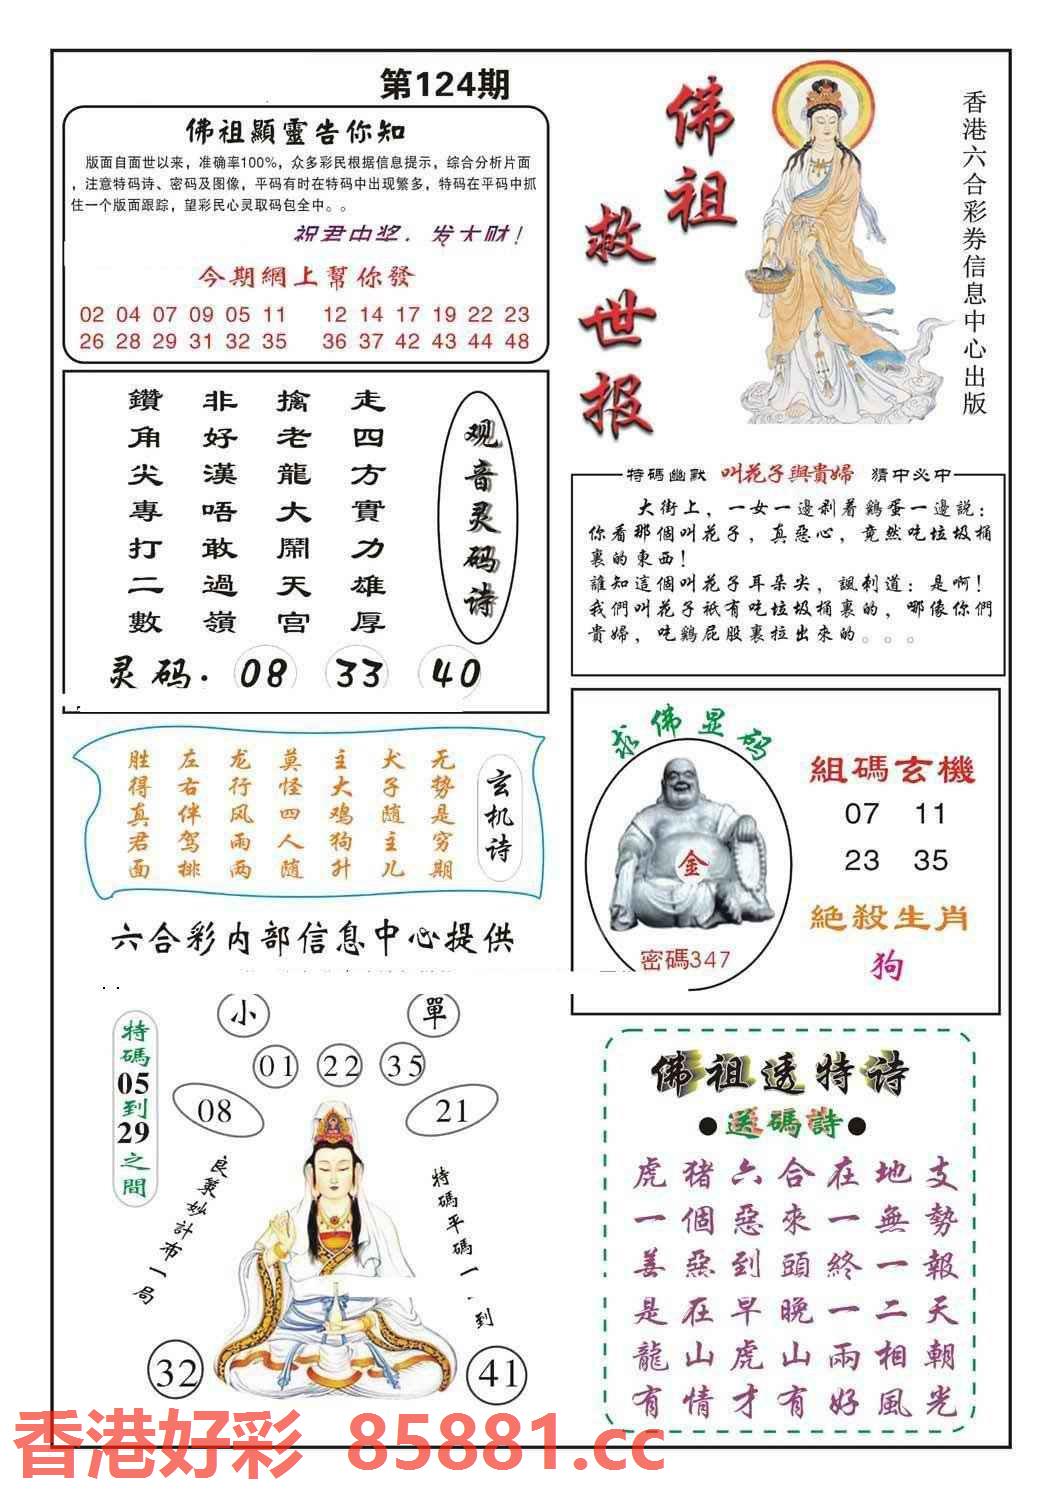 第124期
佛祖顯靈告你知
版面自面世以来，准确率100%，众多彩民根据信息提示，综合分析片面
，注意特码诗、密码及图像，平码有时在特码中出现繁多，特码在平码中抓
住一个版面跟踪，望彩民心灵取码包全中。。
祝君中奖，发大财！
今期網上幫你發
02 04 07 09 05 11 12 14 17 19 22 23
26 28 29 31 32 35 36 37 42 43 44 48
佛祖
救世报
香港六合彩券信息中心出版
观音灵码诗
走四方實力雄厚
擒老龍大鬧天宫
非好漢唔敢過嶺
鑽角尖專打二數
灵码. 08 33 40
特碼幽默 叫花子與貴婦 猜中必中
大街上，一女一邊剥着鷄蛋一邊説：
你看那個叫花子，真惡心，竟然吃垃圾桶
裏的東西！
誰知這個叫花子耳朵尖，諷刺道：是啊！
我們叫花子祇有吃垃圾桶裏的，哪像你們
貴婦，吃鷄屁股裏拉出來的。。。
玄机诗
无势是穷期
犬子随主儿
主大鸡狗升
莫怪四人随
龙行风雨两
左右伴驾排
胜得真君面
六合彩内部信息中心提供
求佛显码
金
密碼347
組碼玄機
07 11
23 35
絕殺生肖
狗
特碼05到29之間
小 單
01 22 35
08 21
良策妙計布一局
特碼平碼一一到
32 41
佛祖透特诗
●送碼詩●
虎猪六合在地支
一個惡來一無勢
善惡到頭終一報
是在早晚一二天
龍山虎山兩相朝
有情才有好風光
香港好彩 85881.cc